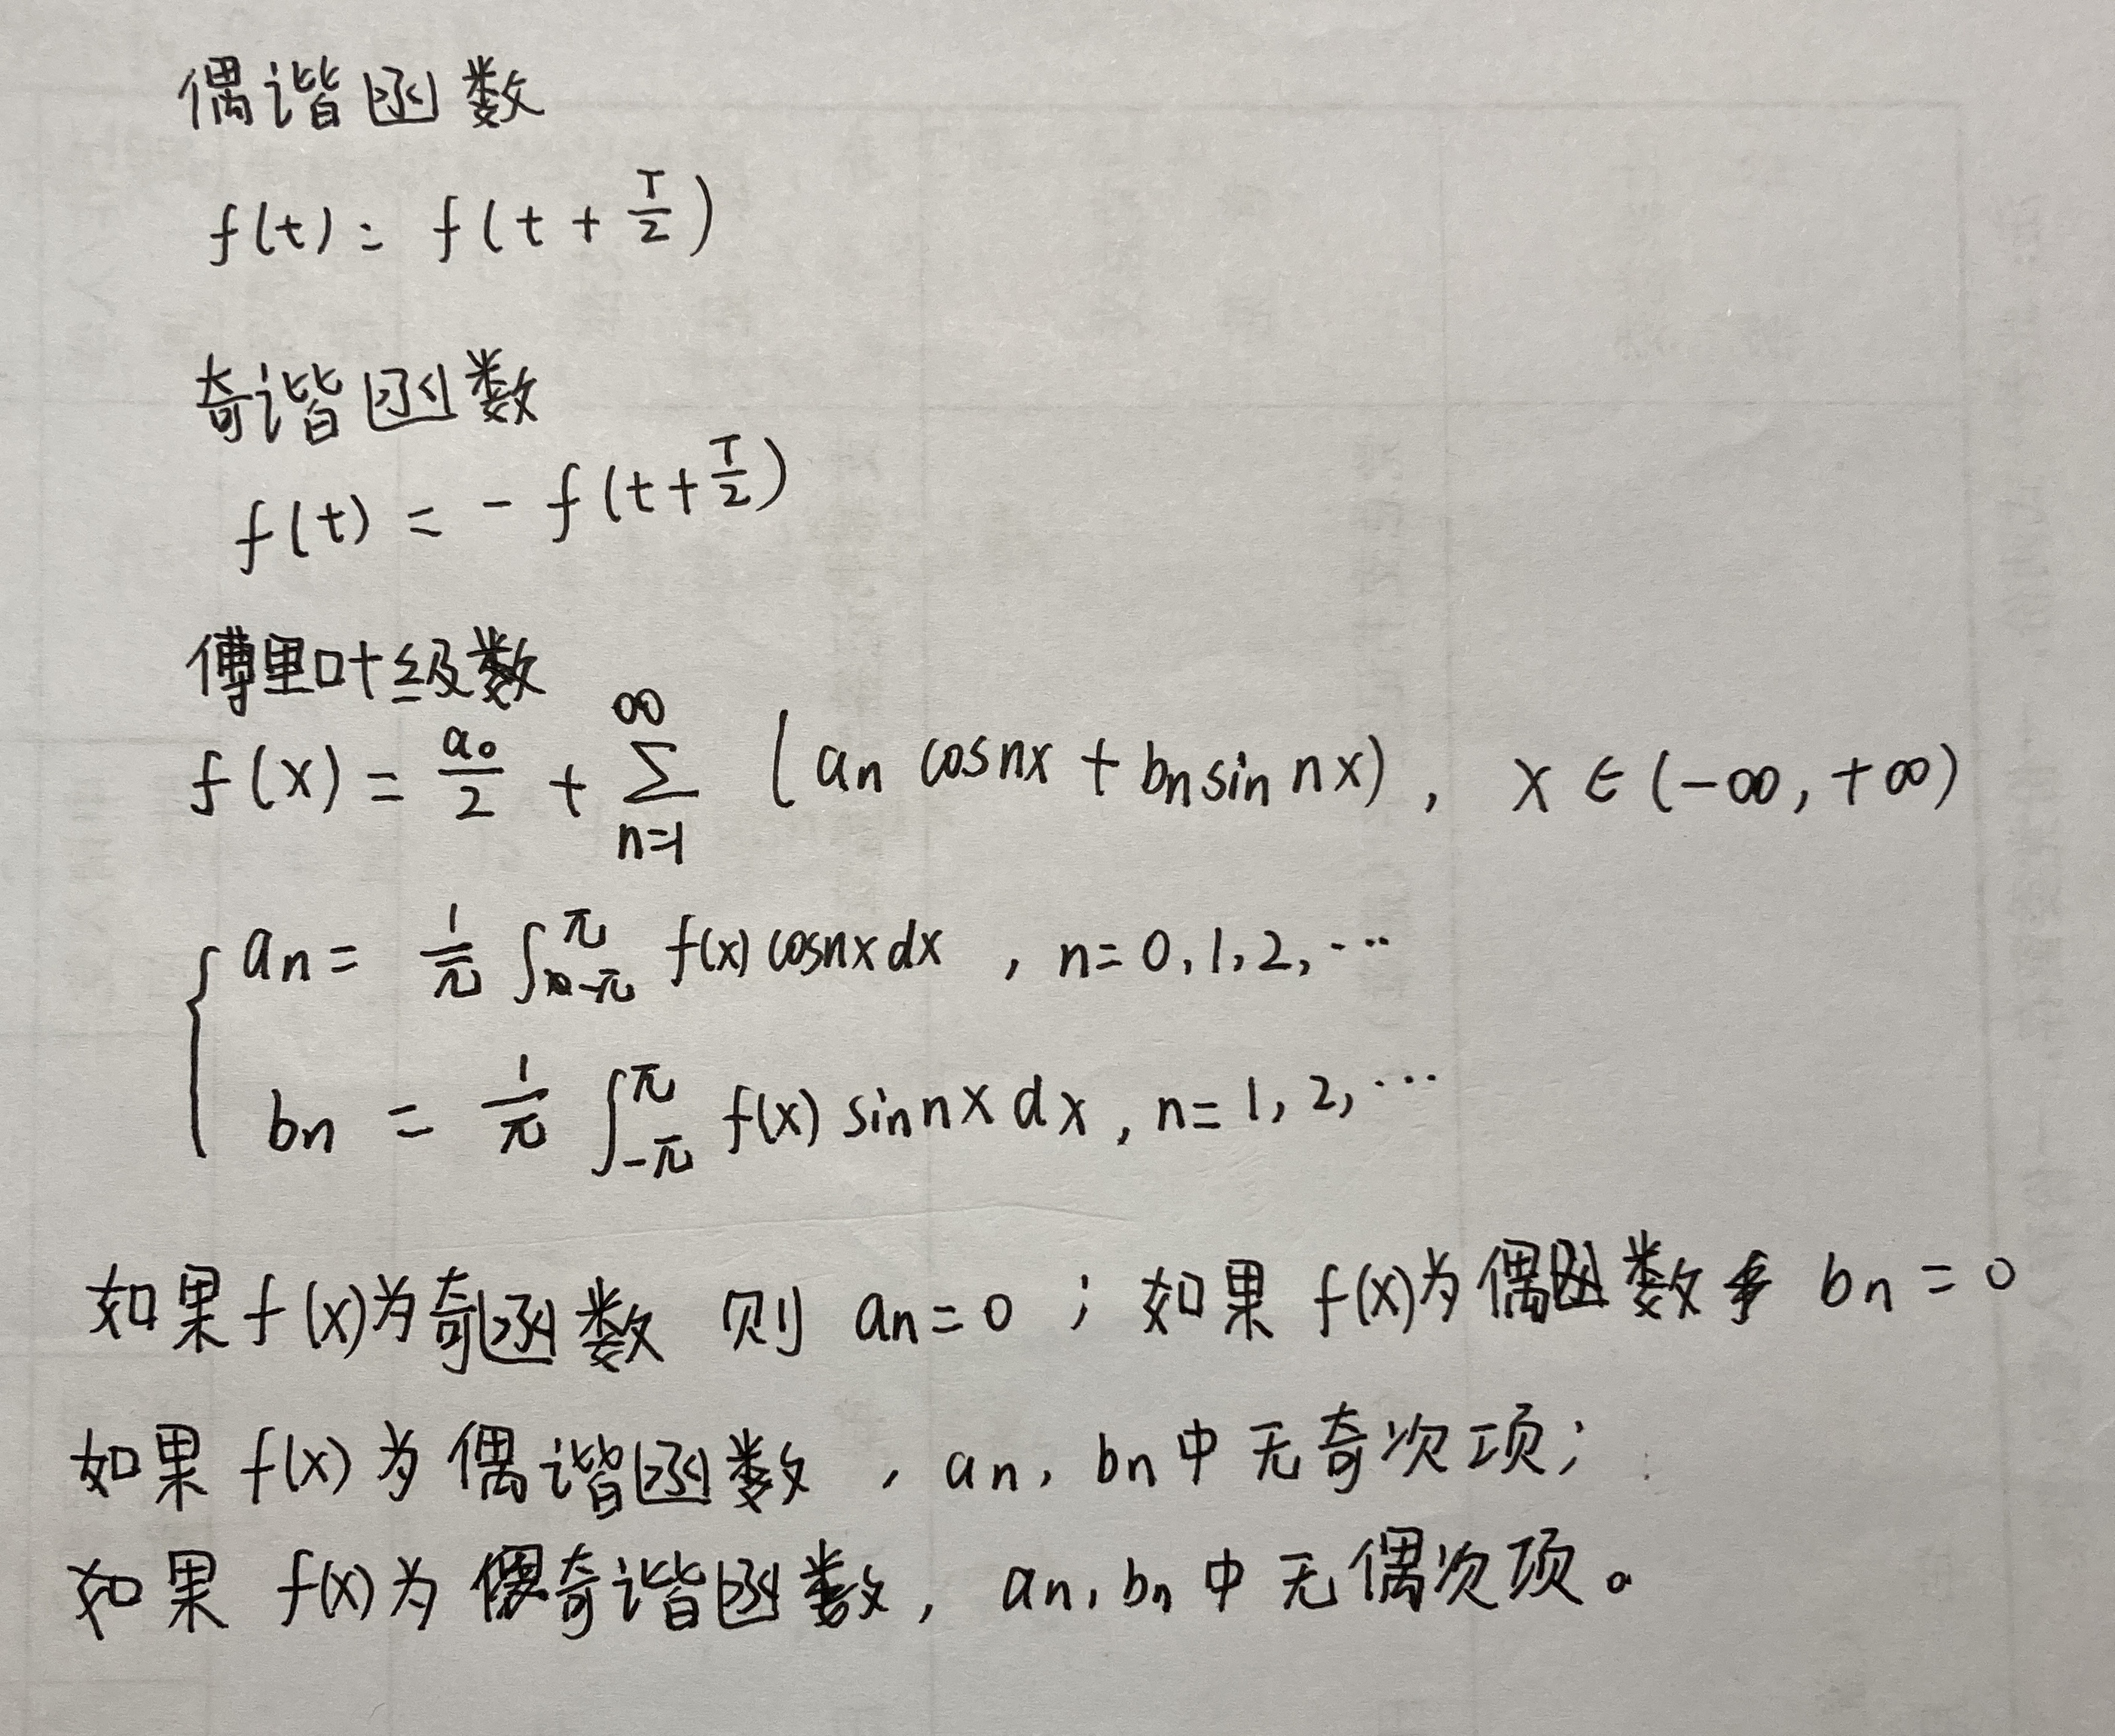 偶谐函数
f(t) = f(t + T/2)
奇谐函数
f(t) = - f(t + T/2)
傅里叶级数
f(x) = a₀/2 + ∑_{n=1}^{∞} (aₙ cosnx + bₙ sin nx), x ∈ (-∞, +∞)
{ aₙ = 1/π ∫_{-π}^{π} f(x) cosnx dx , n = 0, 1, 2, ⋯
bₙ = 1/π ∫_{-π}^{π} f(x) sin nx dx , n = 1, 2, ⋯
如果 f(x)为奇函数 则 aₙ = 0 ; 如果 f(x)为偶函数 bₙ = 0
如果 f(x) 为 偶谐函数 , aₙ, bₙ 中 无奇次项;
如果 f(x) 为 奇谐函数, aₙ, bₙ 中 无偶次项。